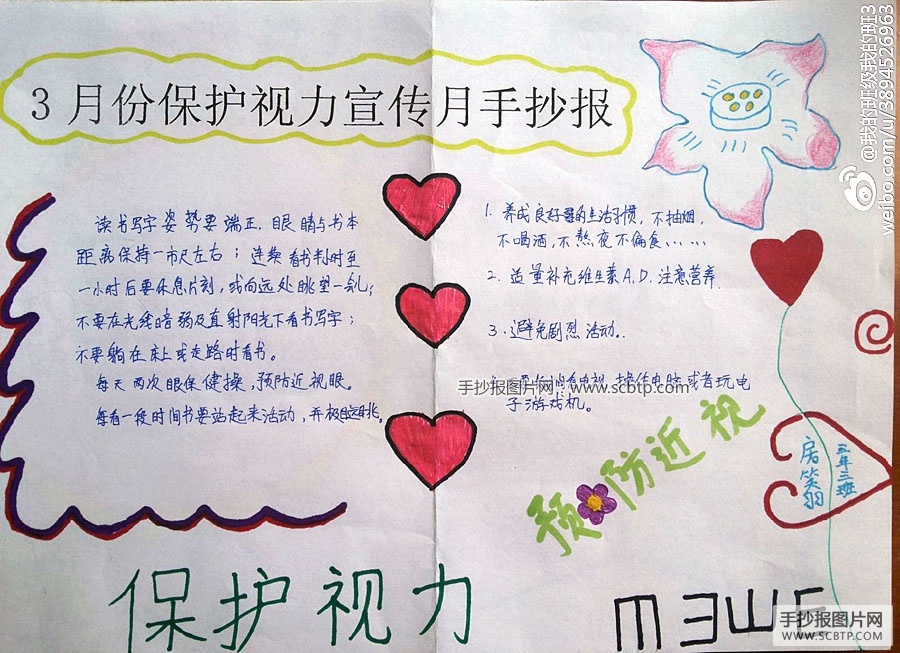 3月份保护视力宣传月手抄报
读书写字姿势要端正.眼睛与书本
距离保持一市尺左右；连续看书判时至
一小时后要休息片刻，或向远处眺望一会儿；
不要在光线暗弱及直射阳光下看书写字；
不要躺在床上或走路时看书。
每天两次眼保健操，预防近视眼。
每看一段时间书要站起来活动，并极目远眺。
1. 养成良好的生活习惯，不抽烟，
不喝酒，不熬夜不偏食……
2. 适量补充维生素A,D.注意营养.
3.避免剧烈活动.
看电视，操作电脑或者玩电
子游戏机。
预防近视
房笑羽
五年三班
保护视力
mヨωE
@我的班级我的班3
weibo.com/u/3894526963
手抄报图片网：www.scbtp.com
手抄报图片网
WWW.SCBTP.COM